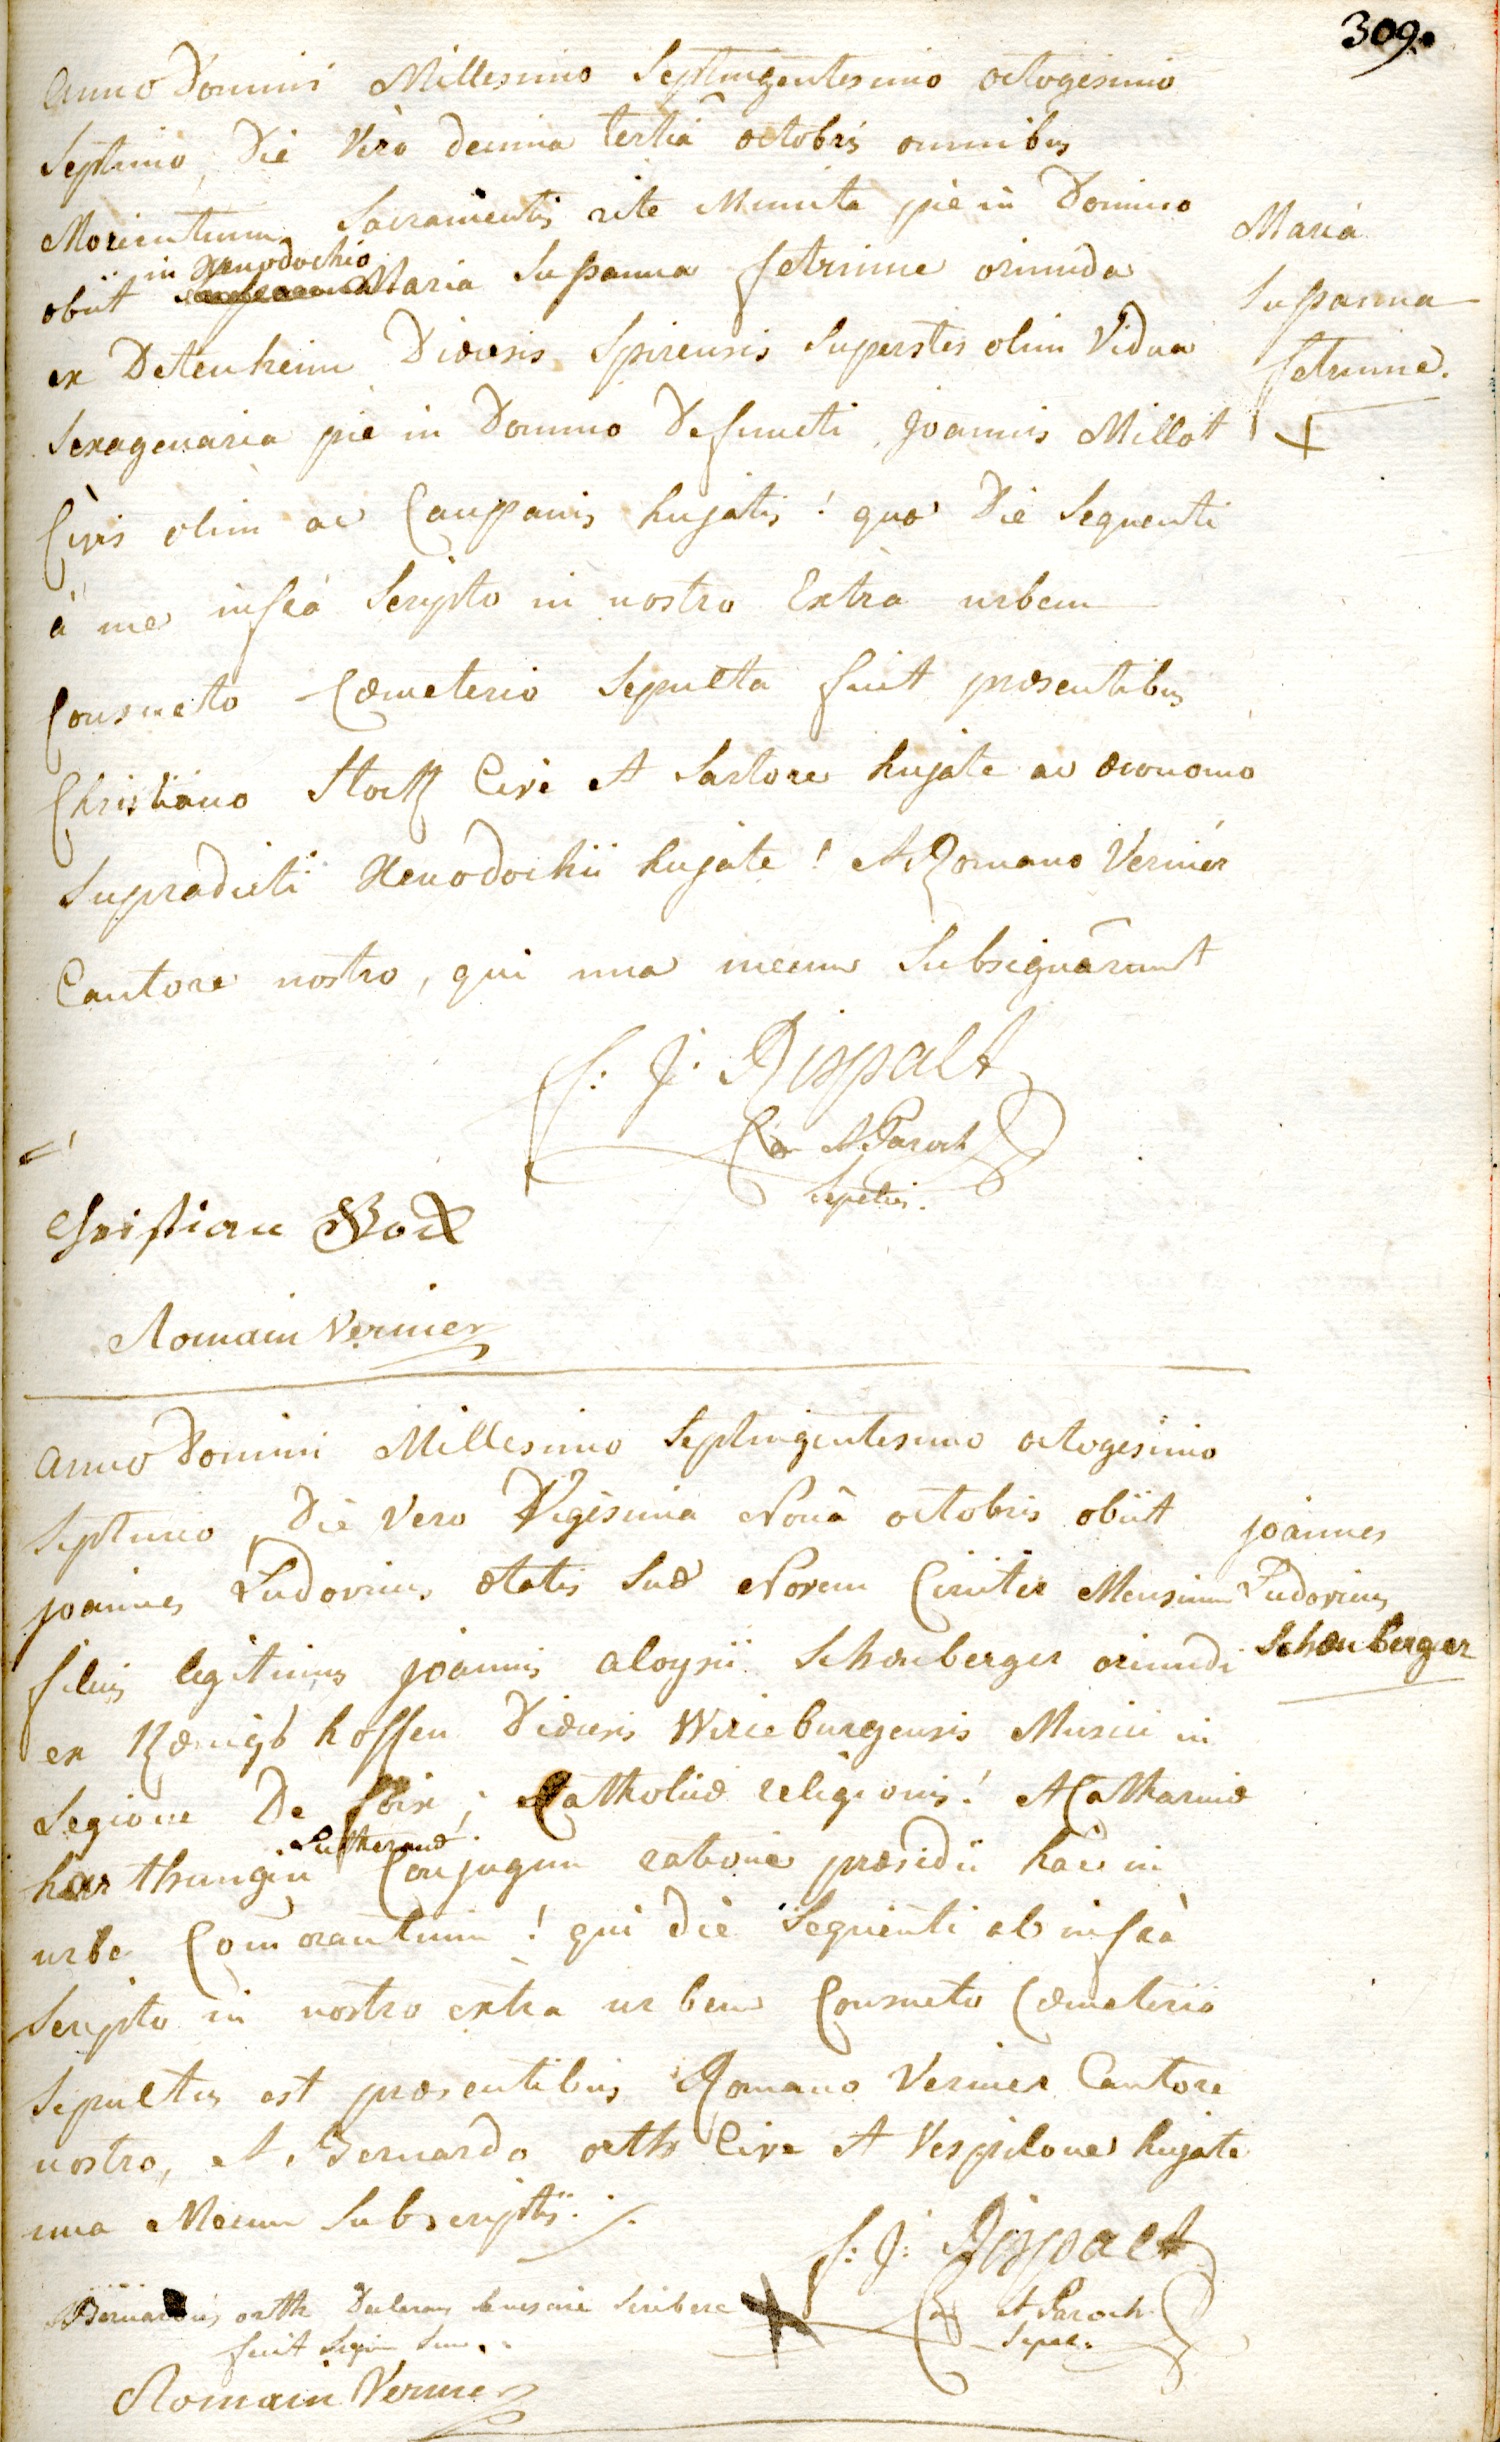 309.
Anno Domini Millesimo Septingentesimo octogesimo
Septimo, Die Vero decima tertiâ octobris omnibus
Morientium Sacramentis rite Munita piè in Domino
in Xenodochio
obiit Maria Susanna fetrinne oriunda
ex Detenheim Diœcesis Spirensis Superstes olim Vidua
Sexagenaria piè in Domino Defuncti Joannis Millot
Civis olim ac Cauponis hujatis! quæ Die Sequenti
à me infrà Scripto in nostro Extra urbem
Consueto Cœmeterio Sepulta fuit præsentibus
Christiano Stock Cive et Sartore hujate ac œconomo
Supradicti Xenodochii hujate! et Romano Vernier
Cantore nostro, qui una mecum Subsignârunt
Maria
Susanna
fetrinne.
F: J: Rispalt
Can et Paroch
Christian Stock
Romain Vernier
Anno Domini Millesimo Septingentesimo octogesimo
Septimo, Die Vero Vigesima Nonâ octobris obiit
joannes Ludovicus ætatis Suæ Novem Circiter Mensium
filius legitimus joannis aloysii Schœnberger oriundi
ex Kœnigshoffen Diœcesis Wirceburgensis Musici in
Legione De foix; Catholicæ religionis! et Catharinæ
Lutheranæ
harthungin Conjugum ratione præsidii hac in
urbe Com̄orantium! qui die Sequenti ab infrà
Scripto in nostro extra urbem Consueto Cœmeterio
Sepultus est præsentibus Romano Vernier Cantore
nostro, et Bernardo orth Cive et Vespilone hujate
una Mecum Subscriptis.
joannes
Ludovicus
Schœnberger
F: J: Rispalt
Can et Paroch
Bernardus orth Declarans Se nescire Scribere
fecit Signum Suum
Romain Vernier